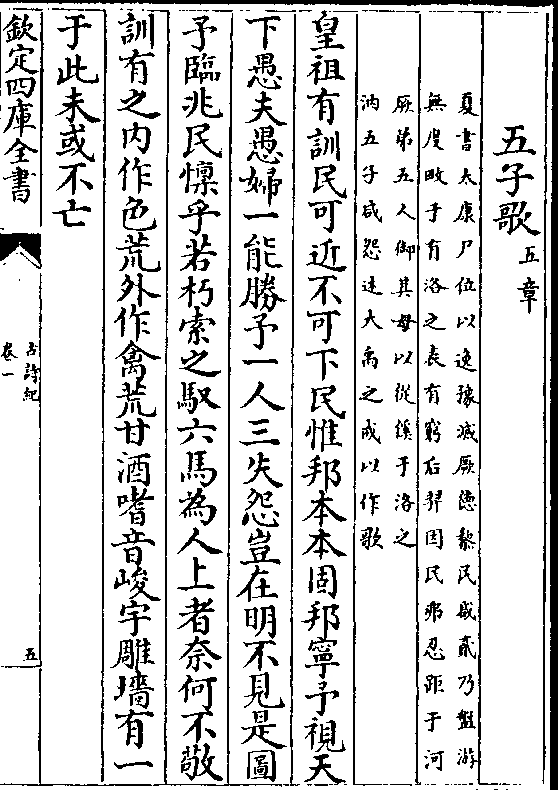 五子歌五章
夏書太康尸位以逸豫滅厥德黎民咸貳乃盤游
無度畋于有洛之表有窮后羿因民弗忍距于河
厥弟五人御其母以從徯于洛之
汭五子咸怨述大禹之戒以作歌
皇祖有訓民可近不可下民惟邦本本固邦寧予視天
下愚夫愚婦一能勝予一人三失怨豈在明不見是圖
予臨兆民懍乎若朽索之馭六馬為人上者奈何不敬
訓有之內作色荒外作禽荒甘酒嗜音峻宇雕墻有一
于此未或不亡
欽定四庫全書
古詩紀
卷一
五